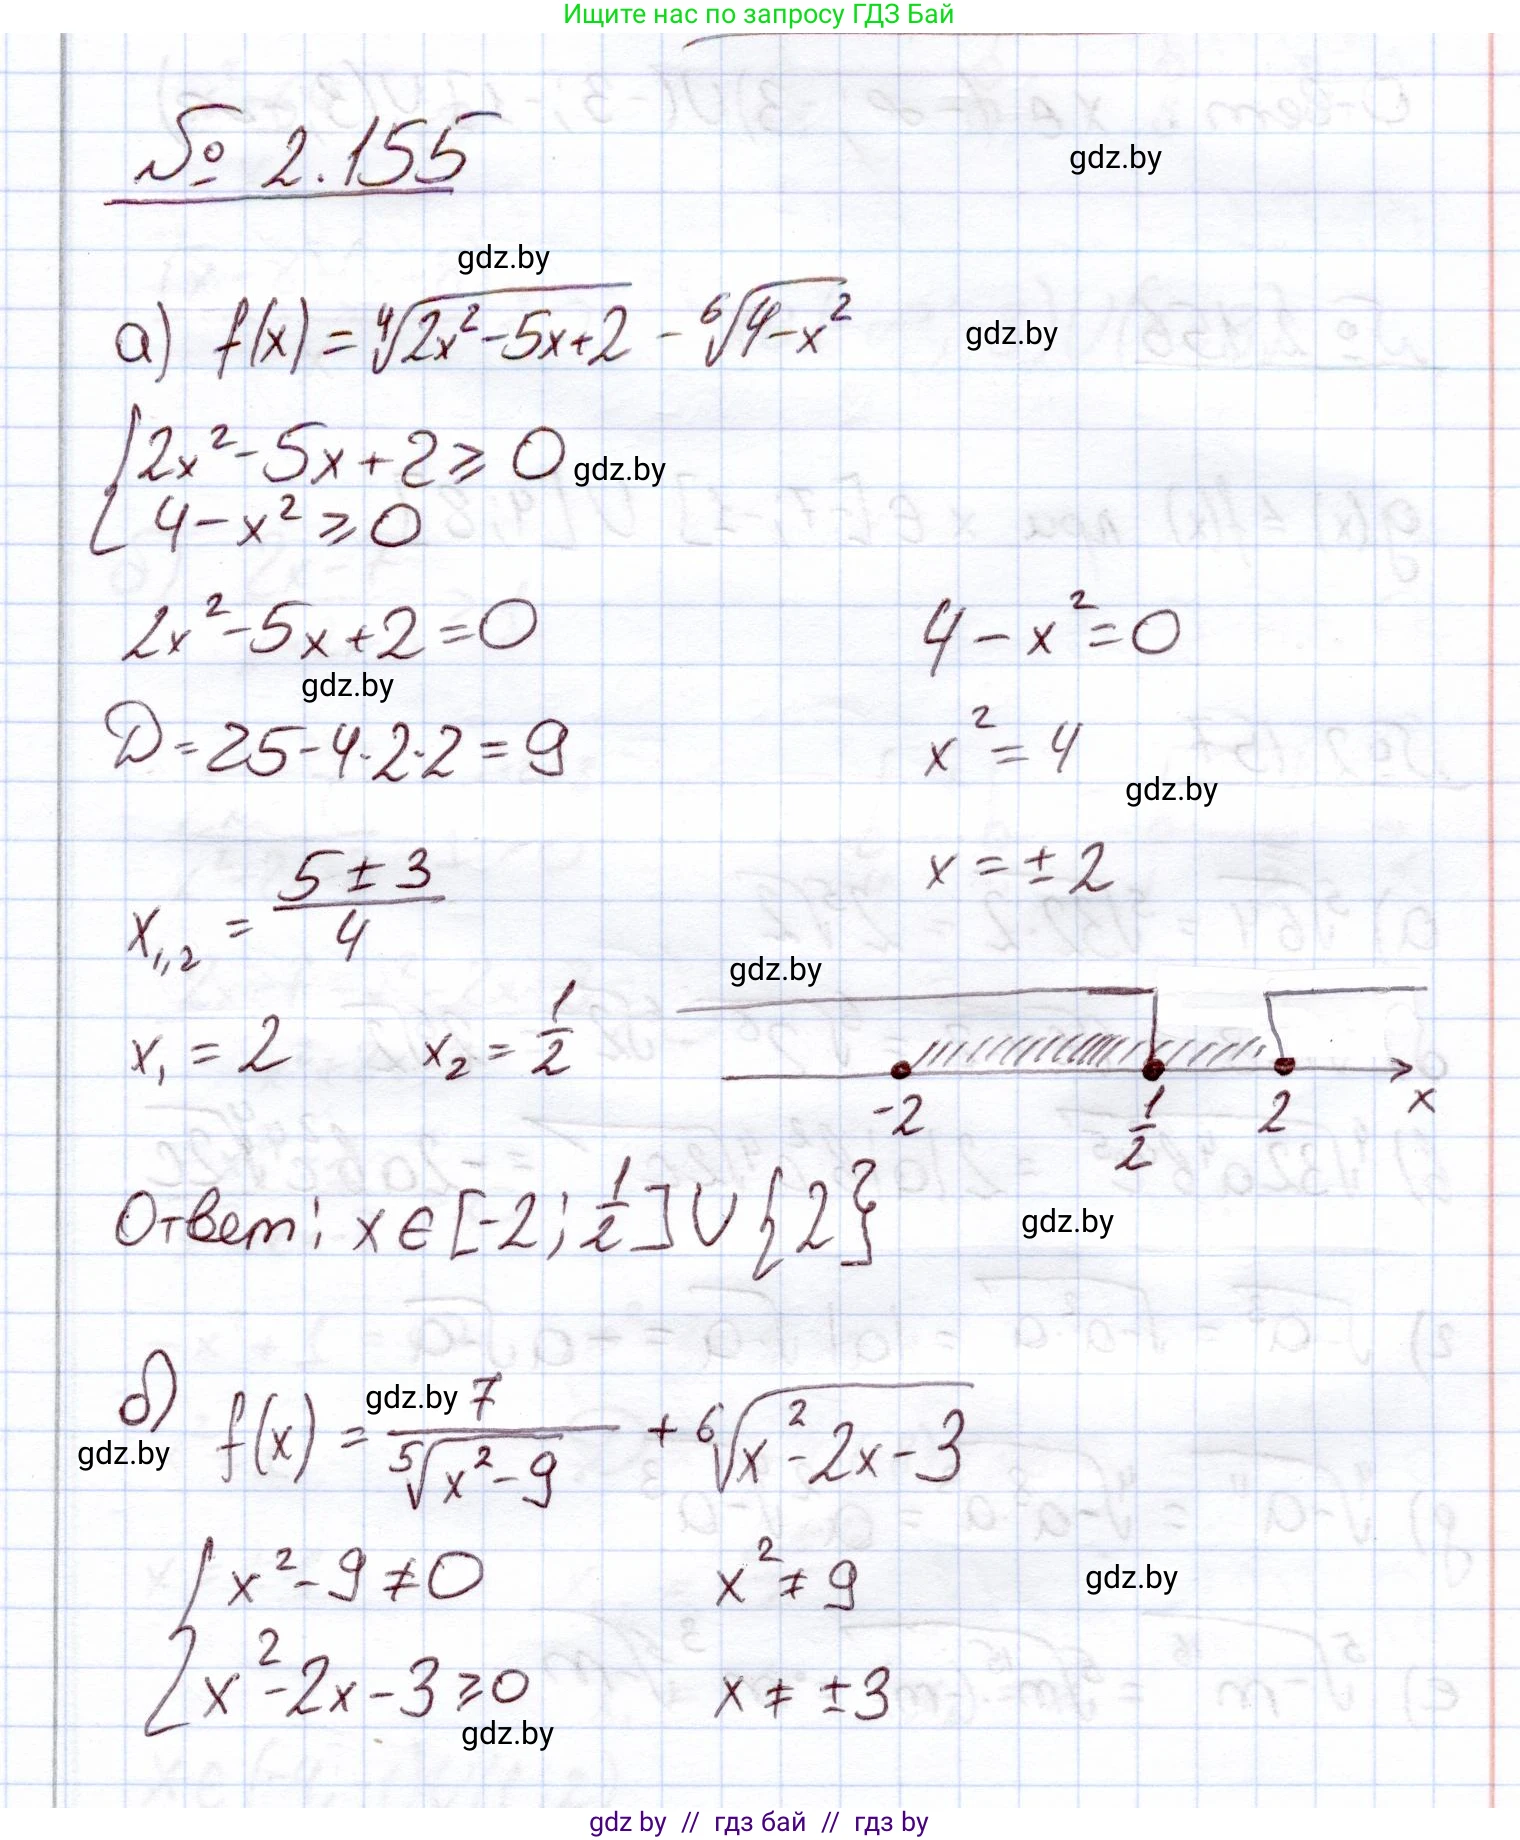 Ищите нас по запросу ГДЗ Бай
№ 2.155
gdz.by
gdz.by
а) f(x) = ⁴√(2x² - 5x + 2) - ⁶√(4 - x²)
gdz.by
{ 2x² - 5x + 2 ⩾ 0
gdz.by
4 - x² ⩾ 0
2x² - 5x + 2 = 0
4 - x² = 0
gdz.by
D = 25 - 4·2·2 = 9
x² = 4
gdz.by
x₁,₂ = (5 ± 3)/4
x = ± 2
gdz.by
x₁ = 2 x₂ = 1/2
-2 1/2 2 x
Ответ: x ∈ [-2; 1/2] ∪ {2}
gdz.by
б) f(x) = 7/⁵√(x² - 9) + ⁶√(x² - 2x - 3)
gdz.by
gdz.by
{ x² - 9 ≠ 0
x² ≠ 9
gdz.by
x² - 2x - 3 ⩾ 0
x ≠ ± 3
gdz.by
gdz by // гдз бай // гдз by